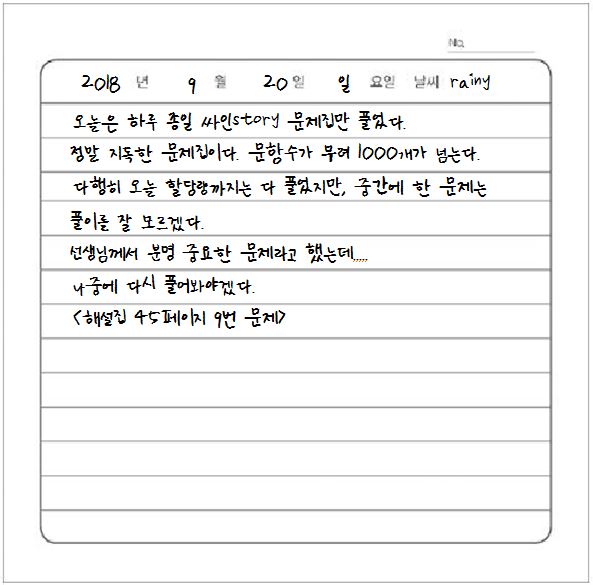 No.
2018 년 9 월 20 일 일 요일 날씨 rainy
오늘은 하루 종일 싸인story 문제집만 풀었다.
정말 지독한 문제집이다. 문항수가 무려 1000개가 넘는다.
다행히 오늘 할당량까지는 다 풀었지만, 중간에 한 문제는
풀이를 잘 모르겠다.
선생님께서 분명 중요한 문제라고 했는데,,,,,
나중에 다시 풀어봐야겠다.
<해설집 45페이지 9번 문제>